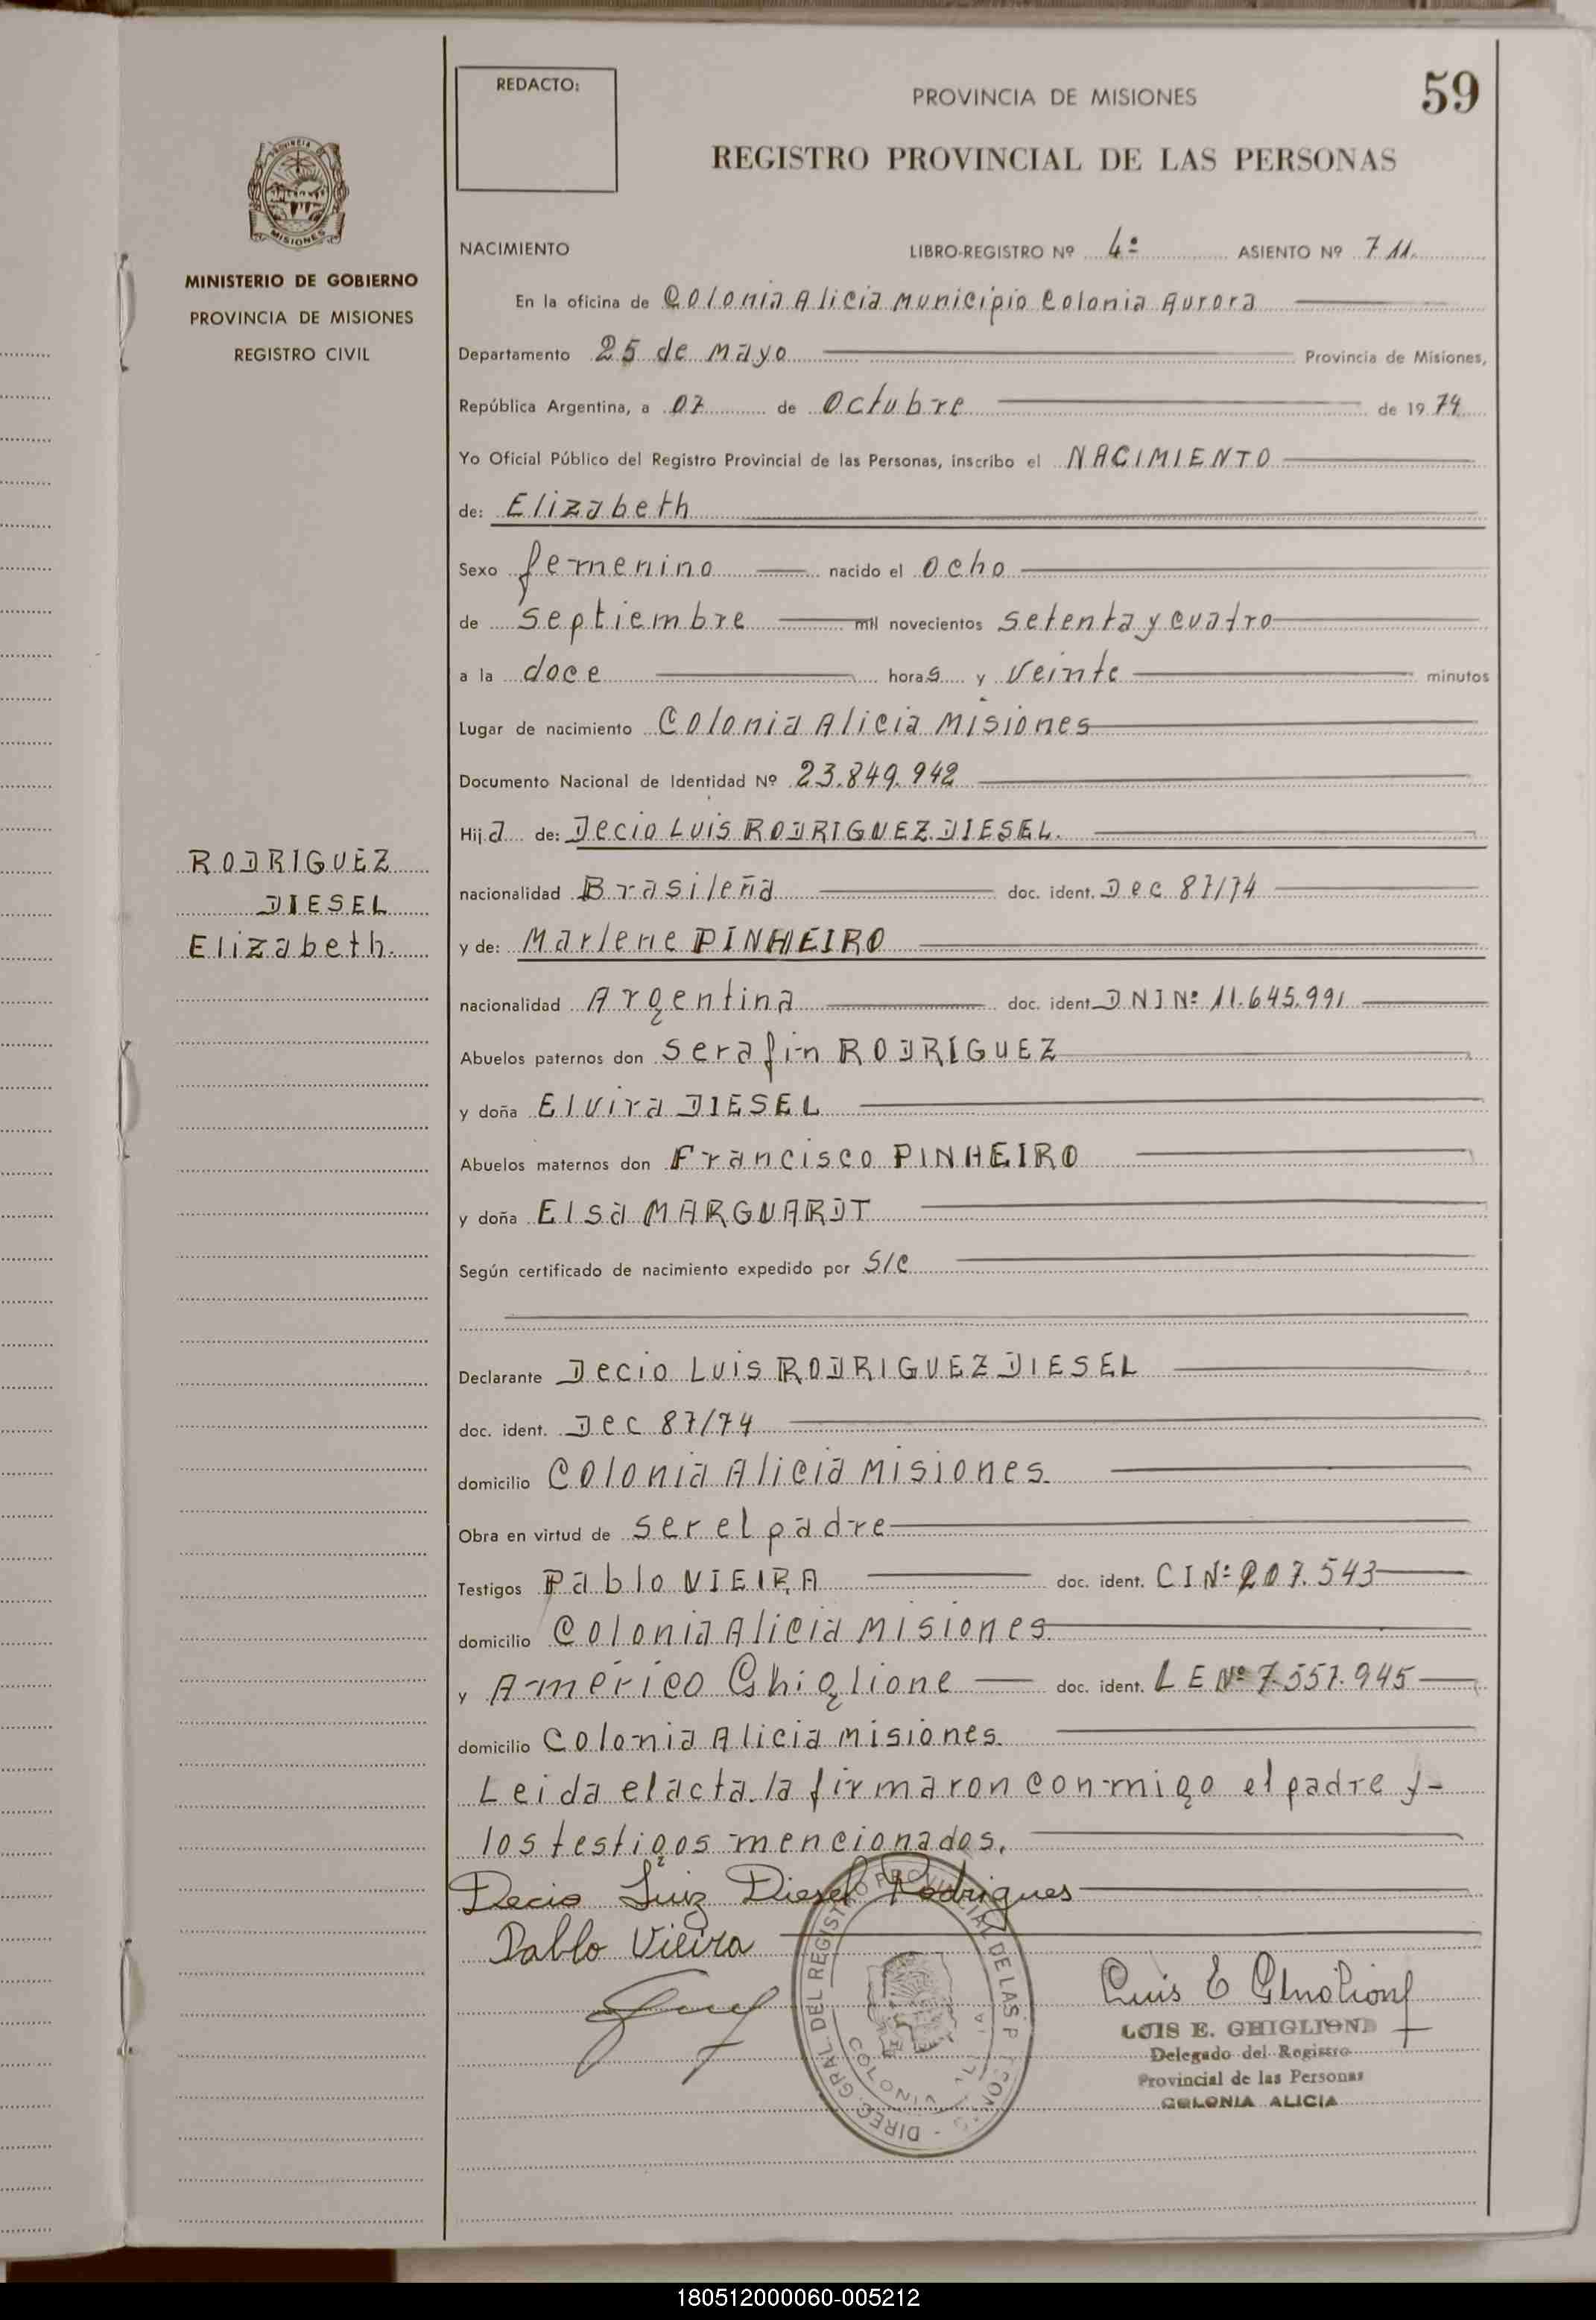 REDACTO:
PROVINCIA DE MISIONES
59
REGISTRO PROVINCIAL DE LAS PERSONAS
MISIONES
MINISTERIO DE GOBIERNO
PROVINCIA DE MISIONES
REGISTRO CIVIL
NACIMIENTO LIBRO-REGISTRO Nº 4º ASIENTO Nº 711
En la oficina de Colonia Alicia Municipio Colonia Aurora
Departamento 25 de Mayo Provincia de Misiones,
República Argentina, a 07 de Octubre de 1974
Yo Oficial Público del Registro Provincial de las Personas, inscribo el NACIMIENTO
de: Elizabeth
Sexo femenino nacido el Ocho
de septiembre mil novecientos setenta y cuatro
a la doce horas y Veinte minutos
Lugar de nacimiento Colonia Alicia Misiones
Documento Nacional de Identidad Nº 23.849.942
Hija de: Decio Luis RODRIGUEZ DIESEL.
RODRIGUEZ
DIESEL
Elizabeth.
nacionalidad Brasileña doc. ident. Dec 87/74
y de: Marlene PINHEIRO
nacionalidad Argentina doc. ident DNI Nº 11.645.991
Abuelos paternos don Serafin RODRIGUEZ
y doña Elvira DIESEL
Abuelos maternos don Francisco PINHEIRO
y doña Elsa MARGUARDT
Según certificado de nacimiento expedido por S/C
Declarante Decio Luis RODRIGUEZ DIESEL
doc. ident. Dec 87/74
domicilio Colonia Alicia Misiones
Obra en virtud de ser el padre
Testigos Pablo VIEIRA doc. ident. CI Nº 207.543
domicilio Colonia Alicia Misiones
y Américo Ghiglione doc. ident. LE Nº 7.557.945
domicilio Colonia Alicia Misiones
Leida el acta la firmaron conmigo el padre y-
los testigos mencionados.
Decio Luiz Diesel Rodrigues
Pablo Vieira
DIREC. GRAL. DEL REGISTRO PROVINCIAL DE LAS P
COLONIA ALICIA
Luis E Ghiglione
LUIS E. GHIGLIONE
Delegado del Registro
Provincial de las Personas
COLONIA ALICIA
180512000060-005212